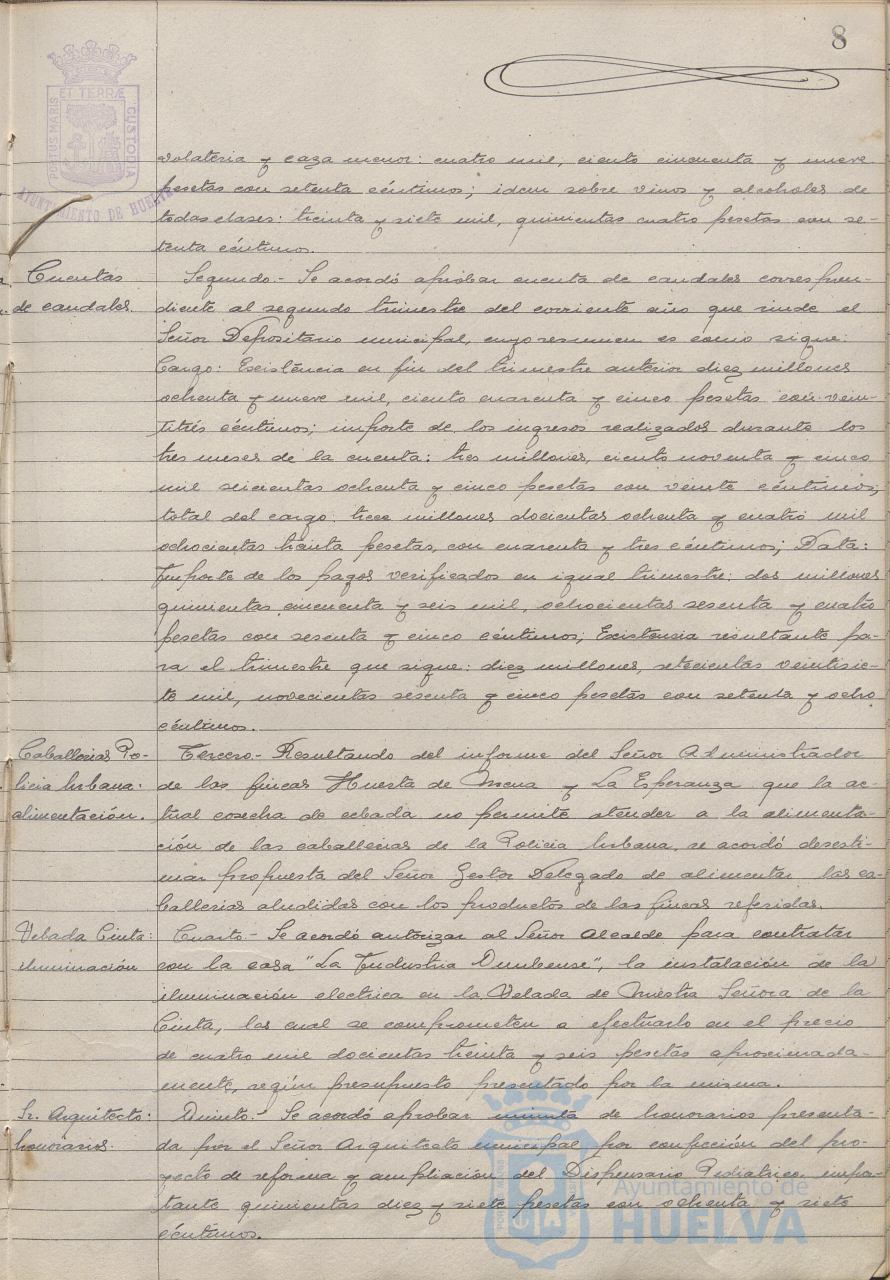 8
ET TERRÆ
PORTUS MARIS
CUSTODIA
AYUNTAMIENTO DE HUELVA
volateria y caza menor: cuatro mil, ciento cincuenta y nueve
pesetas con setenta céntimos; idem sobre vinos y alcoholes de
todas clases: treinta y siete mil, quinientas cuatro pesetas con se-
tenta céntimos.
Cuentas
de caudales.
Segundo.- Se acordó aprobar cuenta de caudales correspon-
diente al segundo trimestre del corriente año que rinde el
Señor Depositario municipal, cuyo resumen es como sigue:
Cargo: Existencia en fin del trimestre anterior diez millones
ochenta y nueve mil, ciento cuarenta y cinco pesetas con vein-
titrés céntimos; importe de los ingresos realizados durante los
tres meses de la cuenta: tres millones, ciento noventa y cinco
mil seicientas ochenta y cinco pesetas con veinte céntimos;
total del cargo: trece millones docientas ochenta y cuatro mil
ochocientas treinta pesetas, con cuarenta y tres céntimos; Data:
Importe de los pagos verificados en igual trimestre: dos millones
quinientas cincuenta y seis mil, ochocientas sesenta y cuatro
pesetas con sesenta y cinco céntimos; Existencia resultante pa-
ra el trimestre que sigue: diez millones, setecientas veintisie-
te mil, novecientas sesenta y cinco pesetas con setenta y ocho
céntimos.
Caballerias Po-
licia Urbana:
alimentación.
Tercero.- Resultando del informe del Señor Administrador
de las fincas Huerta de Mena y La Esperanza que la ac-
tual cosecha de cebada no permite atender a la alimenta-
ción de las caballerias de la Policia Urbana, se acordó desesti-
mar propuesta del Señor Gestor Delegado de alimentar las ca-
ballerias aludidas con los productos de las fincas referidas.
Velada Cinta:
iluminación
Cuarto.- Se acordó autorizar al Señor Alcalde para contratar
con la casa "La Industria Onubense", la instalación de la
iluminación electrica en la Velada de Nuestra Señora de la
Cinta, las cual se comprometen a efectuarlo en el precio
de cuatro mil docientas treinta y seis pesetas aproximada-
mente, según presupuesto presentado por la misma.
Sr. Arquitecto:
honorarios.
Quinto.- Se acordó aprobar minuta de honorarios presenta-
da por el Señor Arquitecto municipal por confección del pro-
yecto de reforma y ampliación del Dispensario Pediatrico, impor-
tante quinientas diez y siete pesetas con ochenta y siete
céntimos.
Ayuntamiento de
HUELVA